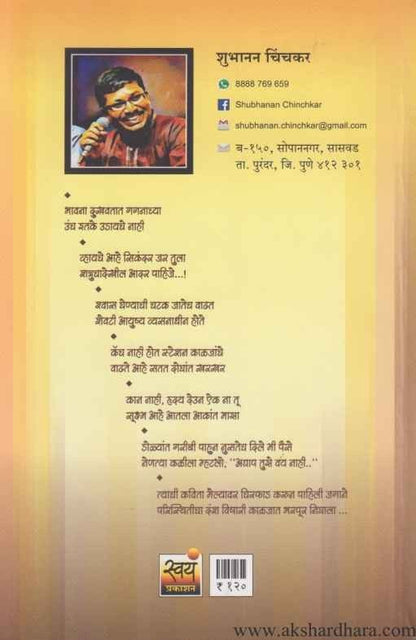 शुभानन चिंचकर
8888 769 659
Shubhanan Chinchkar
shubhanan.chinchkar@gmail.com
ब-१५०, सोपाननगर, सासवड
ता. पुरंदर, जि. पुणे ४१२ ३०१
भावना दुखवतात गगनाच्या
उंच इतके उडायचे नाही
व्हायचे आहे सिकंदर जर तुला
शत्रुचादेखील आदर पाहिजे...!
श्वास घेण्याची चटक जातेच वाढत
शेवटी आयुष्य व्यसनाधीन होते
कॅच नाही होत स्टेशन काळजांचे
वाढते आहे सतत दोघांत खरखर
कान नाही, हृदय देउन ऐक ना तू
सूक्ष्म आहे आतला आकांत माझा
डोळ्यांत गरीबी पाहुन नुसतेच दिले मी पैसे
नेणत्या कळीला म्हटलो, "अद्याप तुझे वय नाही.."
त्याची कविता मेल्यावर चिरफाड करून पाहिली जगाने
परिस्थितीचा दंश विषारी काळजात भरपूर निघाला ...
स्वयं
प्रकाशन
₹ १२०
www.akshardhara.com